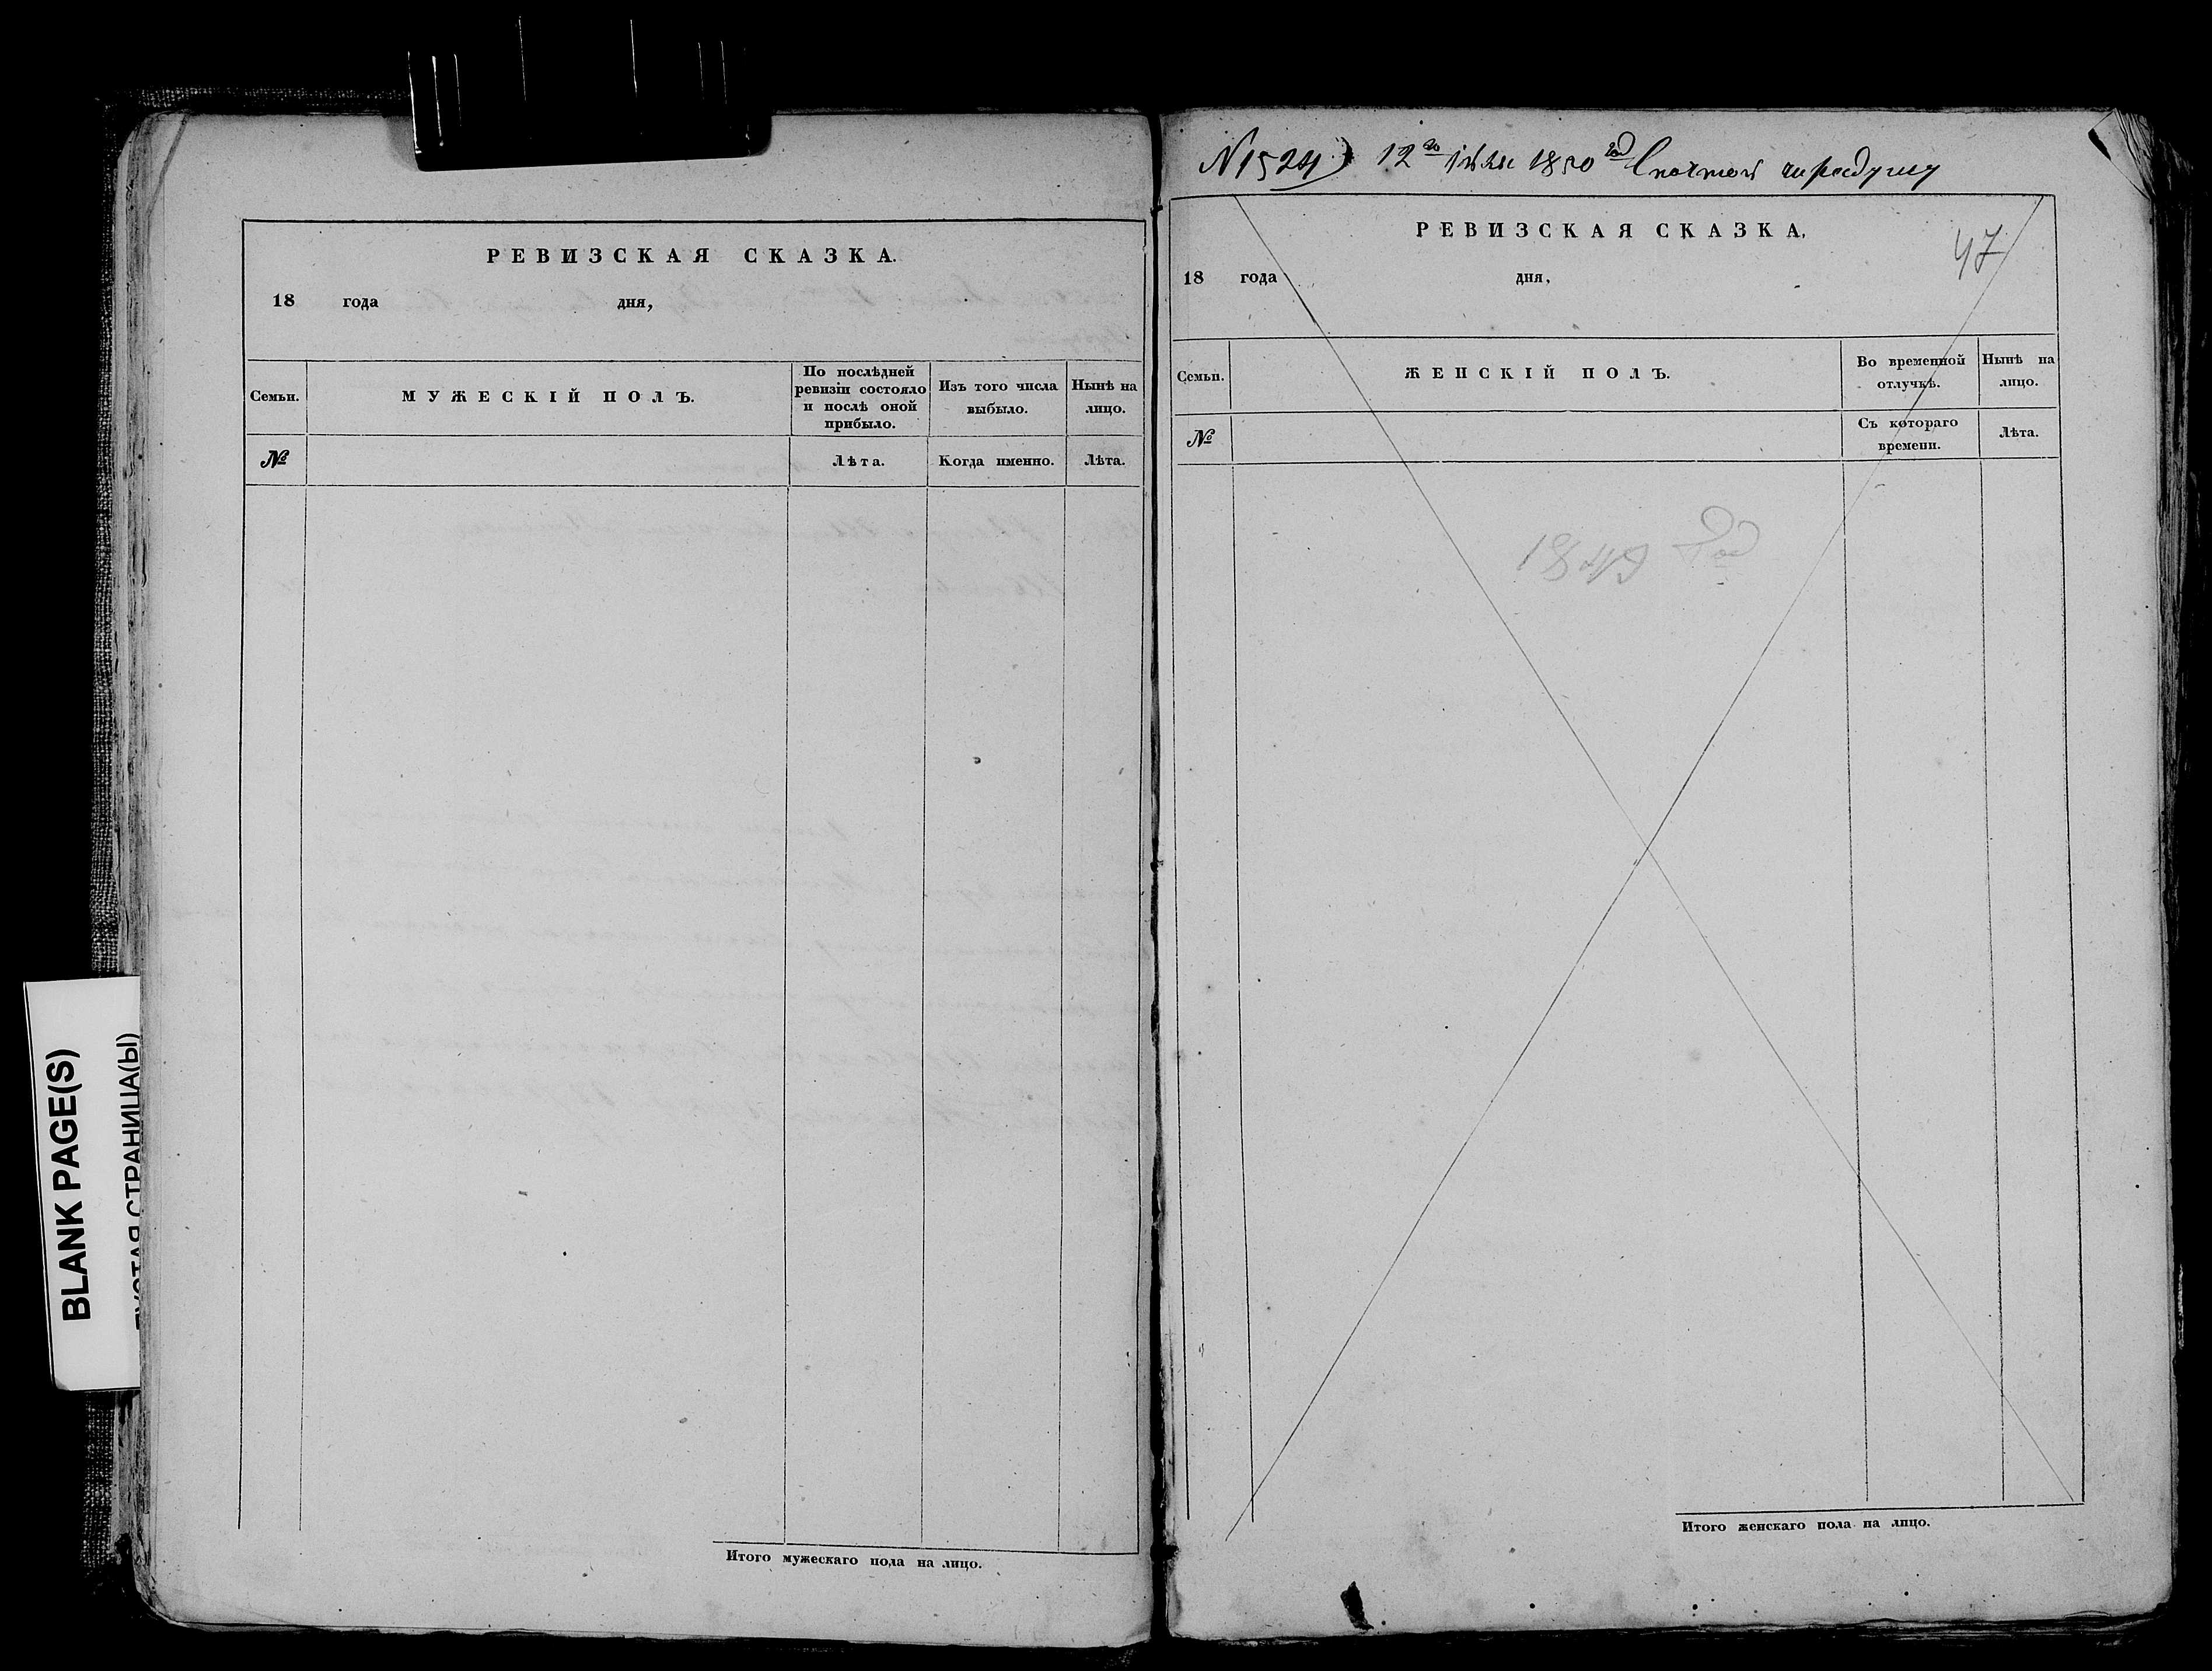 BLANK PAGE(S)
ПУСТАЯ СТРАНИЦА(Ы)
РЕВИЗСКАЯ СКАЗКА.
18 года дня,
Семьи.
МУЖЕСКІЙ ПОЛЪ.
По послѣдней
ревизіи состояло
и послѣ оной
прибыло.
Изъ того числа
выбыло.
Нынѣ на
лицо.
№
Лѣта.
Когда именно.
Лѣта.
Итого мужескаго пола на лицо.
N1524) 12го 1850
РЕВИЗСКАЯ СКАЗКА,
47
18 года дня,
Семьи.
ЖЕНСКІЙ ПОЛЪ.
Во временной
отлучкѣ.
Нынѣ на
лицо.
№
Съ котораго
времени.
Лѣта.
Итого женскаго пола на лицо.